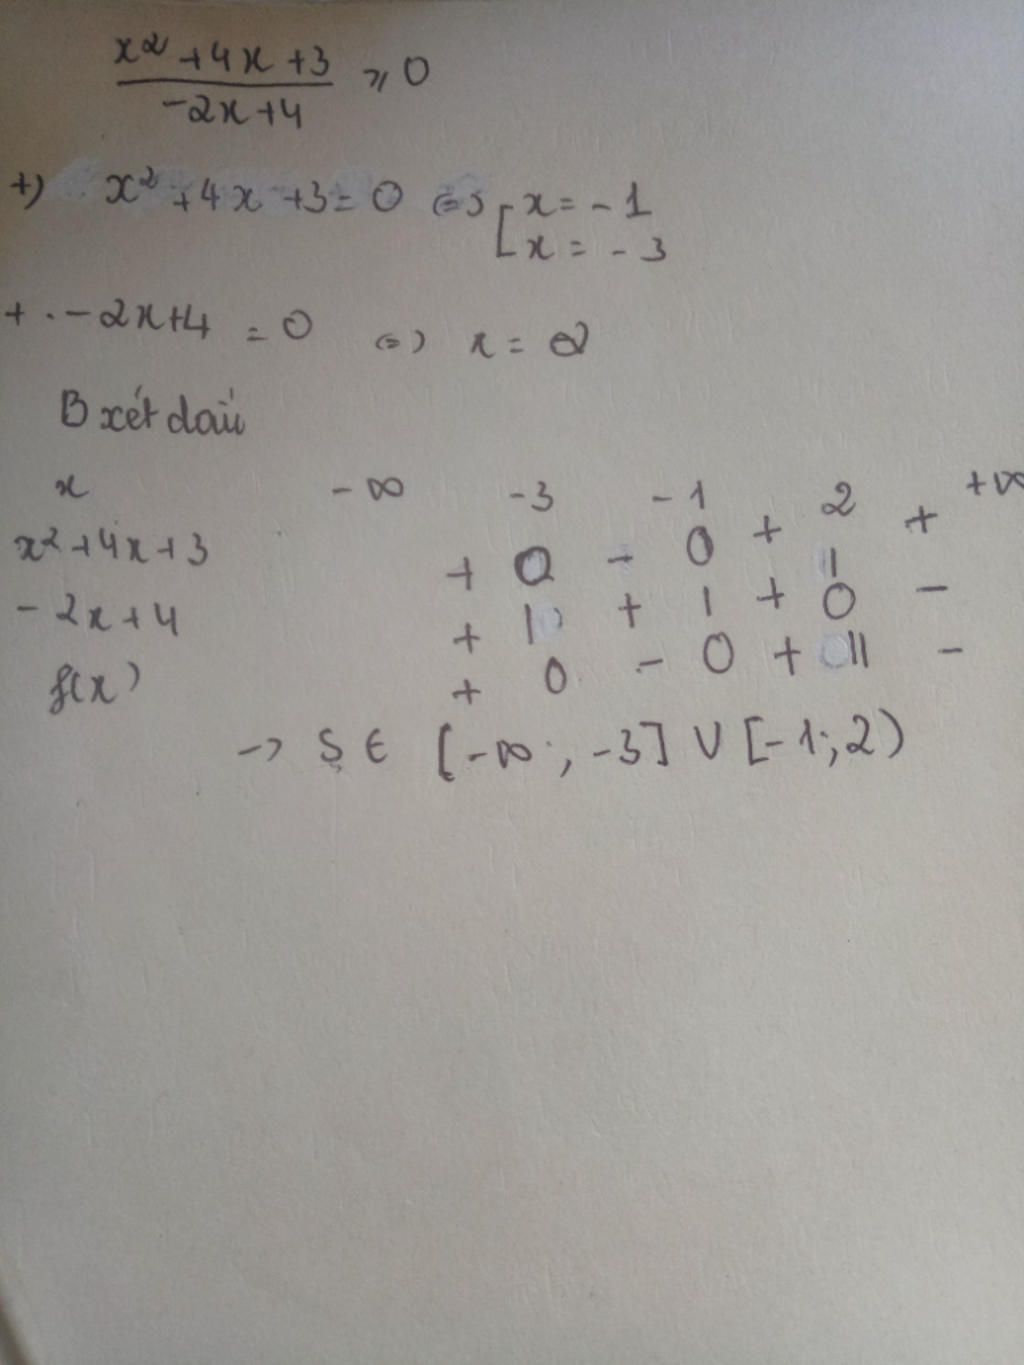 x² + 4x + 3
-2x + 4 ⩾ 0
+) x² + 4x + 3 = 0 <=> [ x = -1
x = -3
+ . -2x + 4 = 0 <=> x = 2
B xét dấu
x -∞ -3 -1 2 +∞
x² + 4x + 3 + 0 - 0 + | +
-2x + 4 + | + | + 0 -
f(x) + 0 - 0 + || -
-> S ∈ [-∞; -3] ∪ [-1; 2)